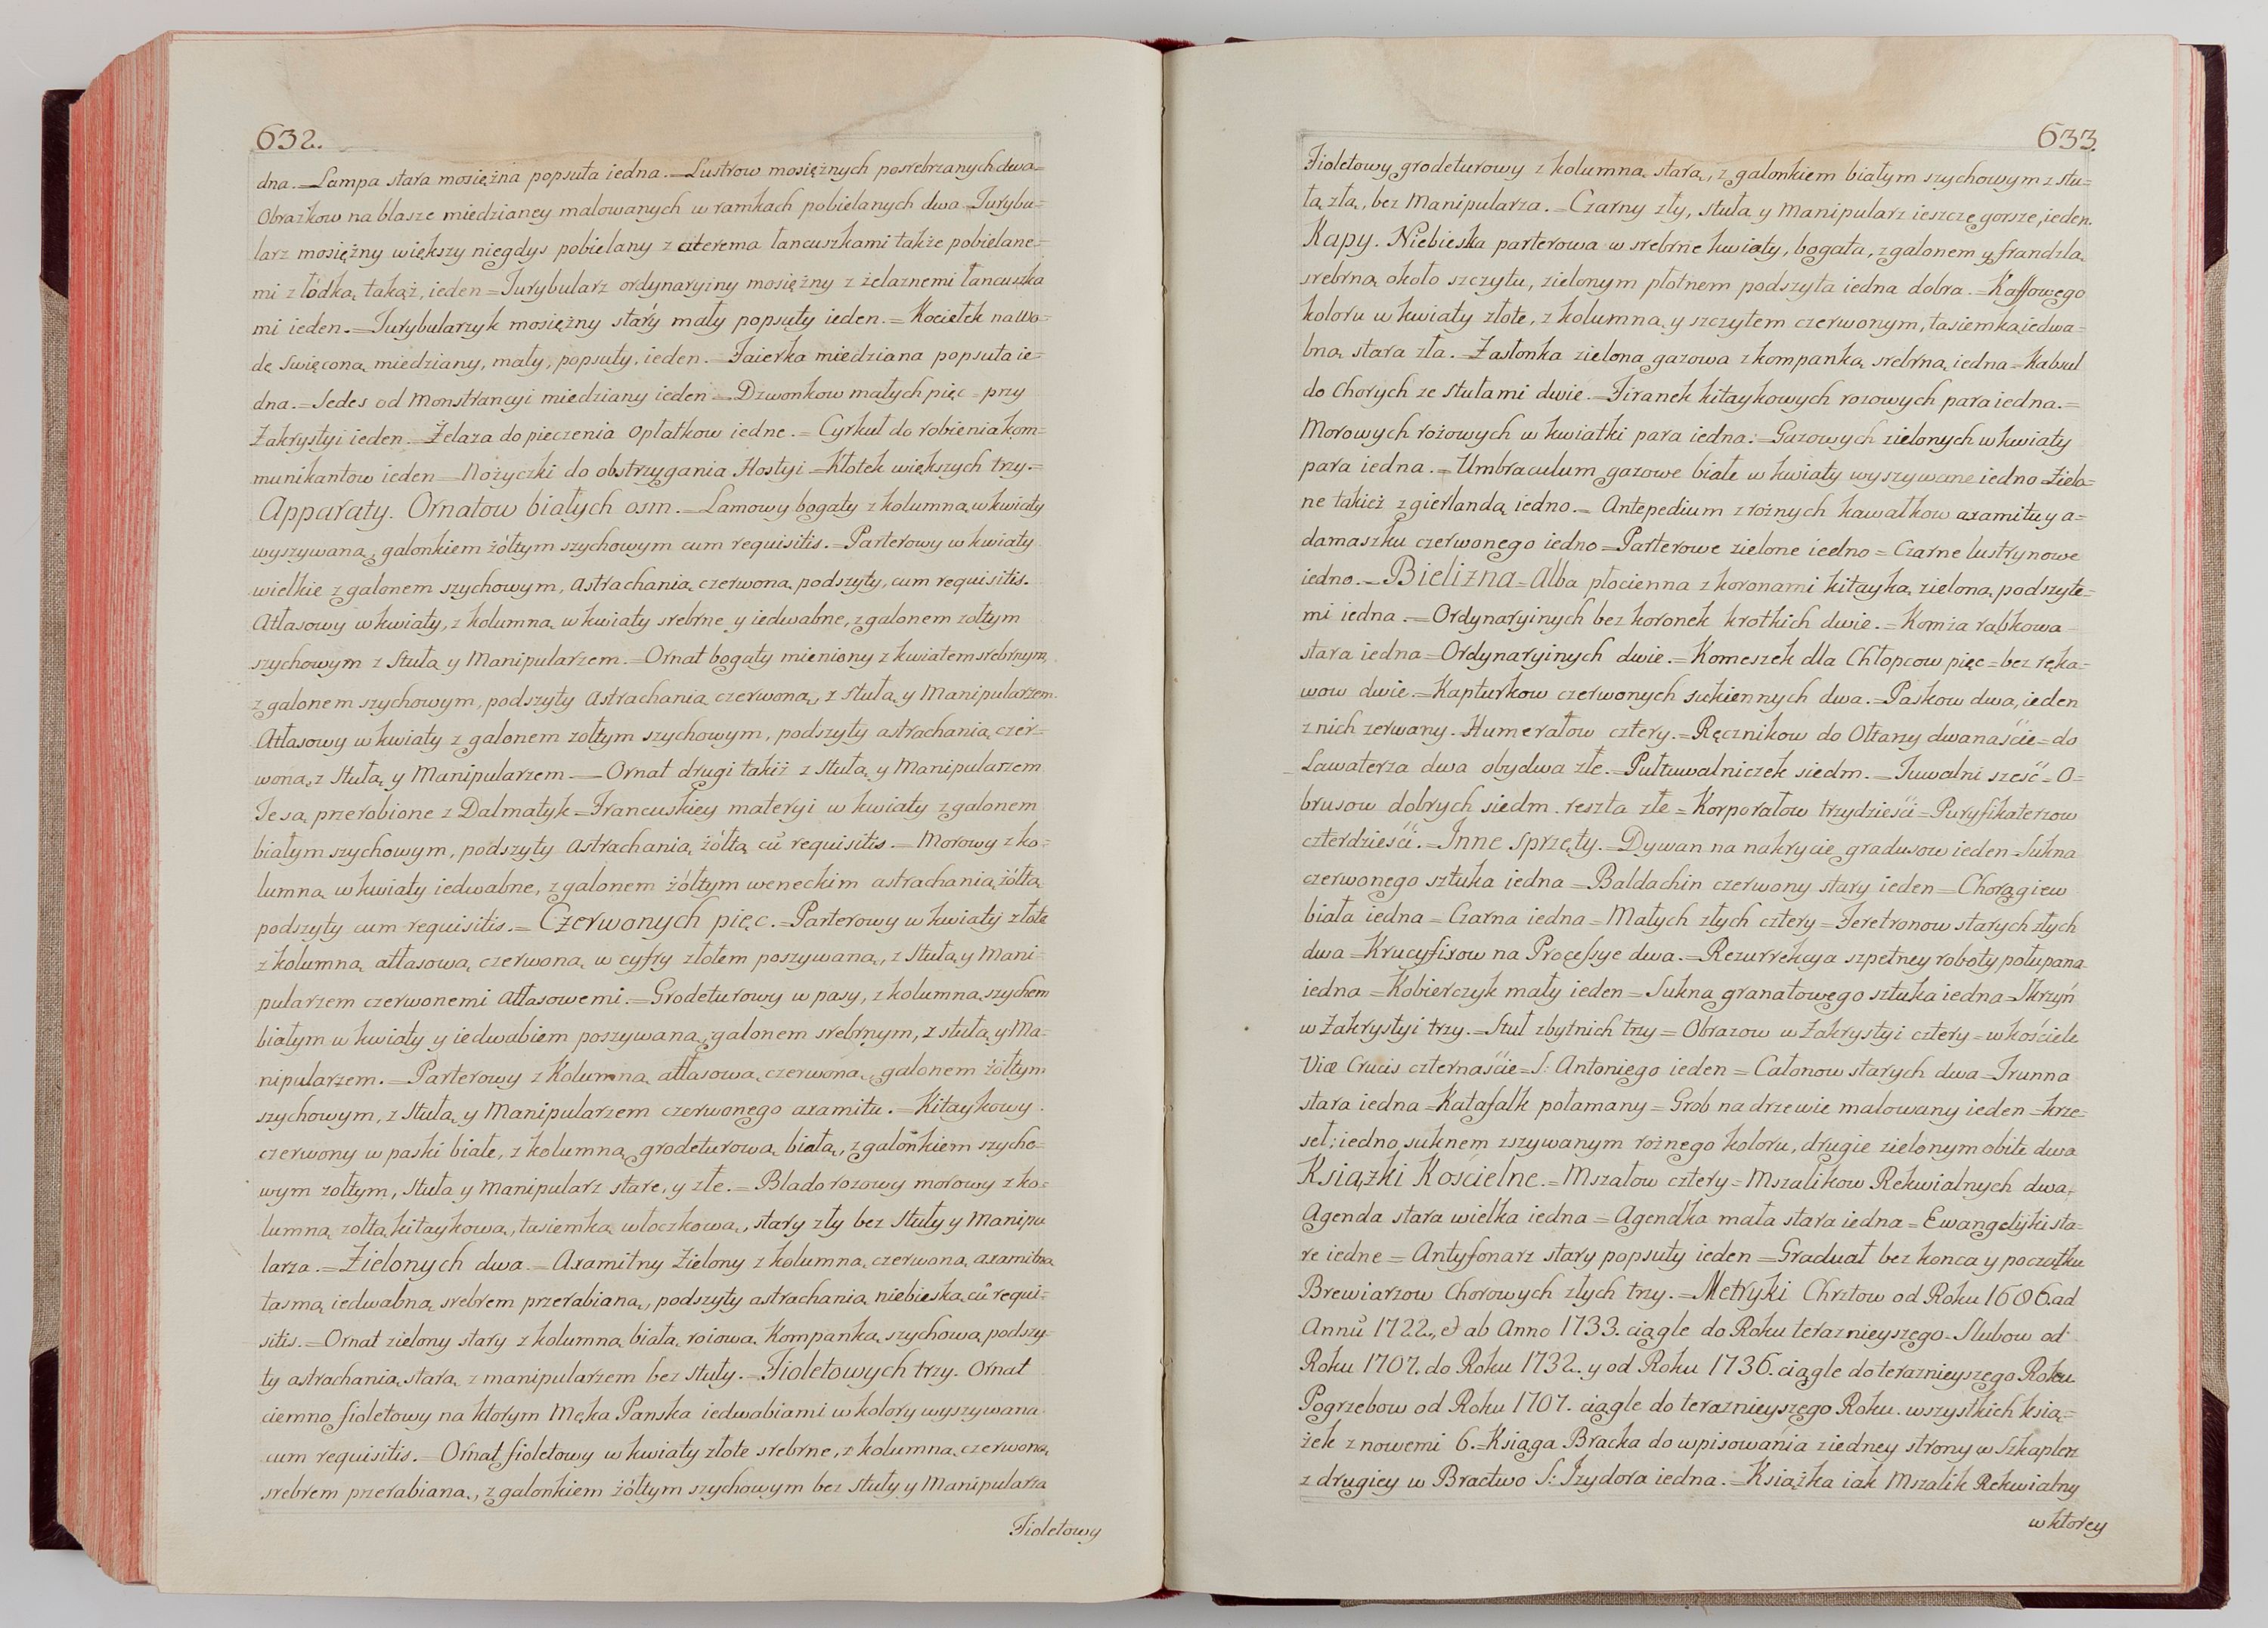 632.
dna. = Lampa stara mosiężna popsuta iedna. = Lustrow mosiężnych posrebrzanych dwa =
Obrazkow na blasze miedzianey malowanych w ramkach pobielanych dwa = Turybu=
larz mosiężny większy niegdys pobielany z czterema łancuszkami także pobielane=
mi z łódką takąż, ieden = Turybularz ordynaryiny mosiężny z żelaznemi łancuszka
mi ieden. = Turybularzyk mosiężny stáry mały popsuty ieden. = Kociełek na wo=
dę święconą miedziany, mały, popsuty, ieden. = Faierka miedziana popsuta ie=
dna. = Sedes od Monstrancyi miedziany ieden = Dzwonkow małych pięc = przy
Zakrystyi ieden. = Żelaza do pieczenia Opłatkow iedne. = Cyrkuł do robienia kom=
munikantow ieden = Nożyczki do obstrzygania Hostyi = Kłotek większych trzy. =
Apparaty. Ornatow białych osm. = Lamowy bogaty z kolumną w kwiaty
wyszywaną, galonkiem żółtym szychowym cum requisitis. = Parterowy w kwiaty
wielkie z galonem szychowym, astrachanią czerwoną podszyty, cum requisitis.
Atłasowy w kwiaty, z kolumną w kwiaty srebrne y iedwabne, z galonem zołtym
szychowym z Stułą y Manipularzem. = Ornat bogaty mieniony z kwiatem srebrnym,
z galonem szychowym, podszyty astrachanią czerwoną, z stułą y Manipularzem.
Atłasowy w kwiaty z galonem zołtym szychowym, podszyty astrachanią czer=
woną, z Stułą y Manipularzem = Ornat drugi takiż z Stułą y Manipularzem
Te są przerobione z Dalmatyk = Francuskiey materyi w kwiaty z galonem
białym szychowym, podszyty astrachanią żółtą cū requisitis. = Morowy z ko=
lumną w kwiaty iedwabne, z galonem żółtym weneckim astrachanią żółtą
podszyty cum requisitis. = Czerwonych pięc. = Parterowy w kwiaty złote
z kolumną atłasową czerwoną w cyfry złotem poszywaną, z Stułą y Mani=
pularzem czerwonemi atłasowemi. = Grodeturowy w pasy, z kolumną szychem
białym w kwiaty y iedwabiem poszywaną, galonem srebrnym, z stułą y Ma=
nipularzem. = Parterowy z Kolumną atłasową czerwoną, galonem żółtym
szychowym, z Stułą y Manipularzem czerwonego axamitu. = Kitaykowy
czerwony w paski białe, z kolumną grodeturową białą, z galonkiem szycho=
wym zołtym, Stuła y Manipularz stare, y złe. = Blado rozowy morowy z ko=
lumną zołtą kitaykową, tasiemką włoczkową, stary zły bez Stuły y Manipu
larza. = Zielonych dwa. = Axamitny Zielony z kolumną czerwoną axamitną
tasmą iedwabną srebrem przerabianą, podszyty astrachanią niebieską cū requi=
sitis. = Ornat zielony stary z kolumną białą roiową Kompanką szychową podszy=
ty astrachanią starą z manipularzem bez Stuły. = Fioletowych trzy. Ornat
ciemno fioletowy na ktorym Męka Panska iedwabiami w kolory wyszywana
cum requisitis. = Ornat fioletowy w kwiaty złote srebrne, z kolumną czerwoną,
srebrem przerabianą, z galonkiem żółtym szychowym bez Stuły y Manipularza
Fioletowy
633.
Fioletowy grodeturowy z kolumną starą, z galonkiem białym szychowym z stu=
łą złą, bez Manipularza. = Czarny zły, stuła y Manipularz ieszczę gorsze, ieden.
Kapy. Niebieska parterowa w srebrne kwiaty, bogata, z galonem y frandzlą
srebrną około szczytu, zielonym płotnem podszyta iedna dobra. = Kaffowego
koloru w kwiaty złote, z kolumną y szczytem czerwonym, tasiemką iedwa=
bną stara zła. = Zasłonka zielona gazowa z kompanką srebrną iedna = Kabsul
do Chorych ze Stułami dwie. = Firanek kitaykowych rozowych para iedna. =
Morowych rożowych w kwiatki para iedna. = Gazowych zielonych w kwiaty
para iedna. = Umbraculum gazowe białe w kwiaty wyszywane iedno = Zielo=
ne takież z gierlandą iedno. = Antepedium z rożnych kawałkow axamitu y a=
damaszku czerwonego iedno = Parterowe zielone iedno = Czarne lustrynowe
iedno. = Bielizna = Alba płocienna z koronami kitayką zieloną podszyte=
mi iedna. = Ordynaryinych bez koronek krotkich dwie. = Komża rąbkowa
stara iedna = Ordynaryinych dwie. = Komeszek dla Chłopcow pięc = bez ręka=
wow dwie. = Kapturkow czerwonych sukiennych dwa. = Paskow dwa, ieden
z nich zerwany. Humerałow cztery. = Ręcznikow do Ołtarzy dwanaście = do
Lawaterza dwa obydwa złe. = Pultuwalniczek siedm. = Tuwalni sześć = O=
brusow dobrych siedm. reszta złe = Korporałow trzydzieści = Puryfikaterzow
czterdzieści. = Inne sprzęty. = Dywan na nakrycie gradusow ieden = Sukna
czerwonego sztuka iedna = Baldachin czerwony stary ieden = Chorągiew
biała iedna = Czarna iedna = Małych złych cztery = Feretronow starych złych
dwa = Krucyfixow na Processye dwa. = Rezurrekcya szpetney roboty połupana
iedna = Kobierczyk mały ieden = Sukna granatowego sztuka iedna = Skrzyń
w Zakrystyi trzy. = Stuł zbytnich trzy = Obrazow w Zakrystyi cztery = w kościele
Viæ Crucis czternaście = S: Antoniego ieden = Całonow starych dwa = Trunna
stara iedna = Katafalk połamany = Grob na drzewie malowany ieden = krze=
seł: iedno suknem zszywanym rożnego koloru, drugie zielonym obite dwa
Książki Kościelne. = Mszałow cztery = Mszalikow Rekwialnych dwa,
Agenda stara wielka iedna = Agendka mała stara iedna = Ewangelijki sta=
re iedne = Antyfonarz stary popsuty ieden = Graduał bez konca y początku
Brewiarzow Chorowych złych trzy. = Metryki Chrztow od Roku 1686. ad
Annū 1722., et ab Anno 1733. ciągle do Roku teraznieyszego. Slubow od
Roku 1707. do Roku 1732. y od Roku 1736. ciągle do teraznieyszego Roku
Pogrzebow od Roku 1707. ciągle do teraznieyszego Roku. wszystkich ksią=
żek z nowemi 6. = Księga Bracka do wpisowania z iedney strony w Szkaplerz
z drugiey w Bractwo S: Izydora iedna. = Książka iak Mszalik Rekwialny
w ktorey